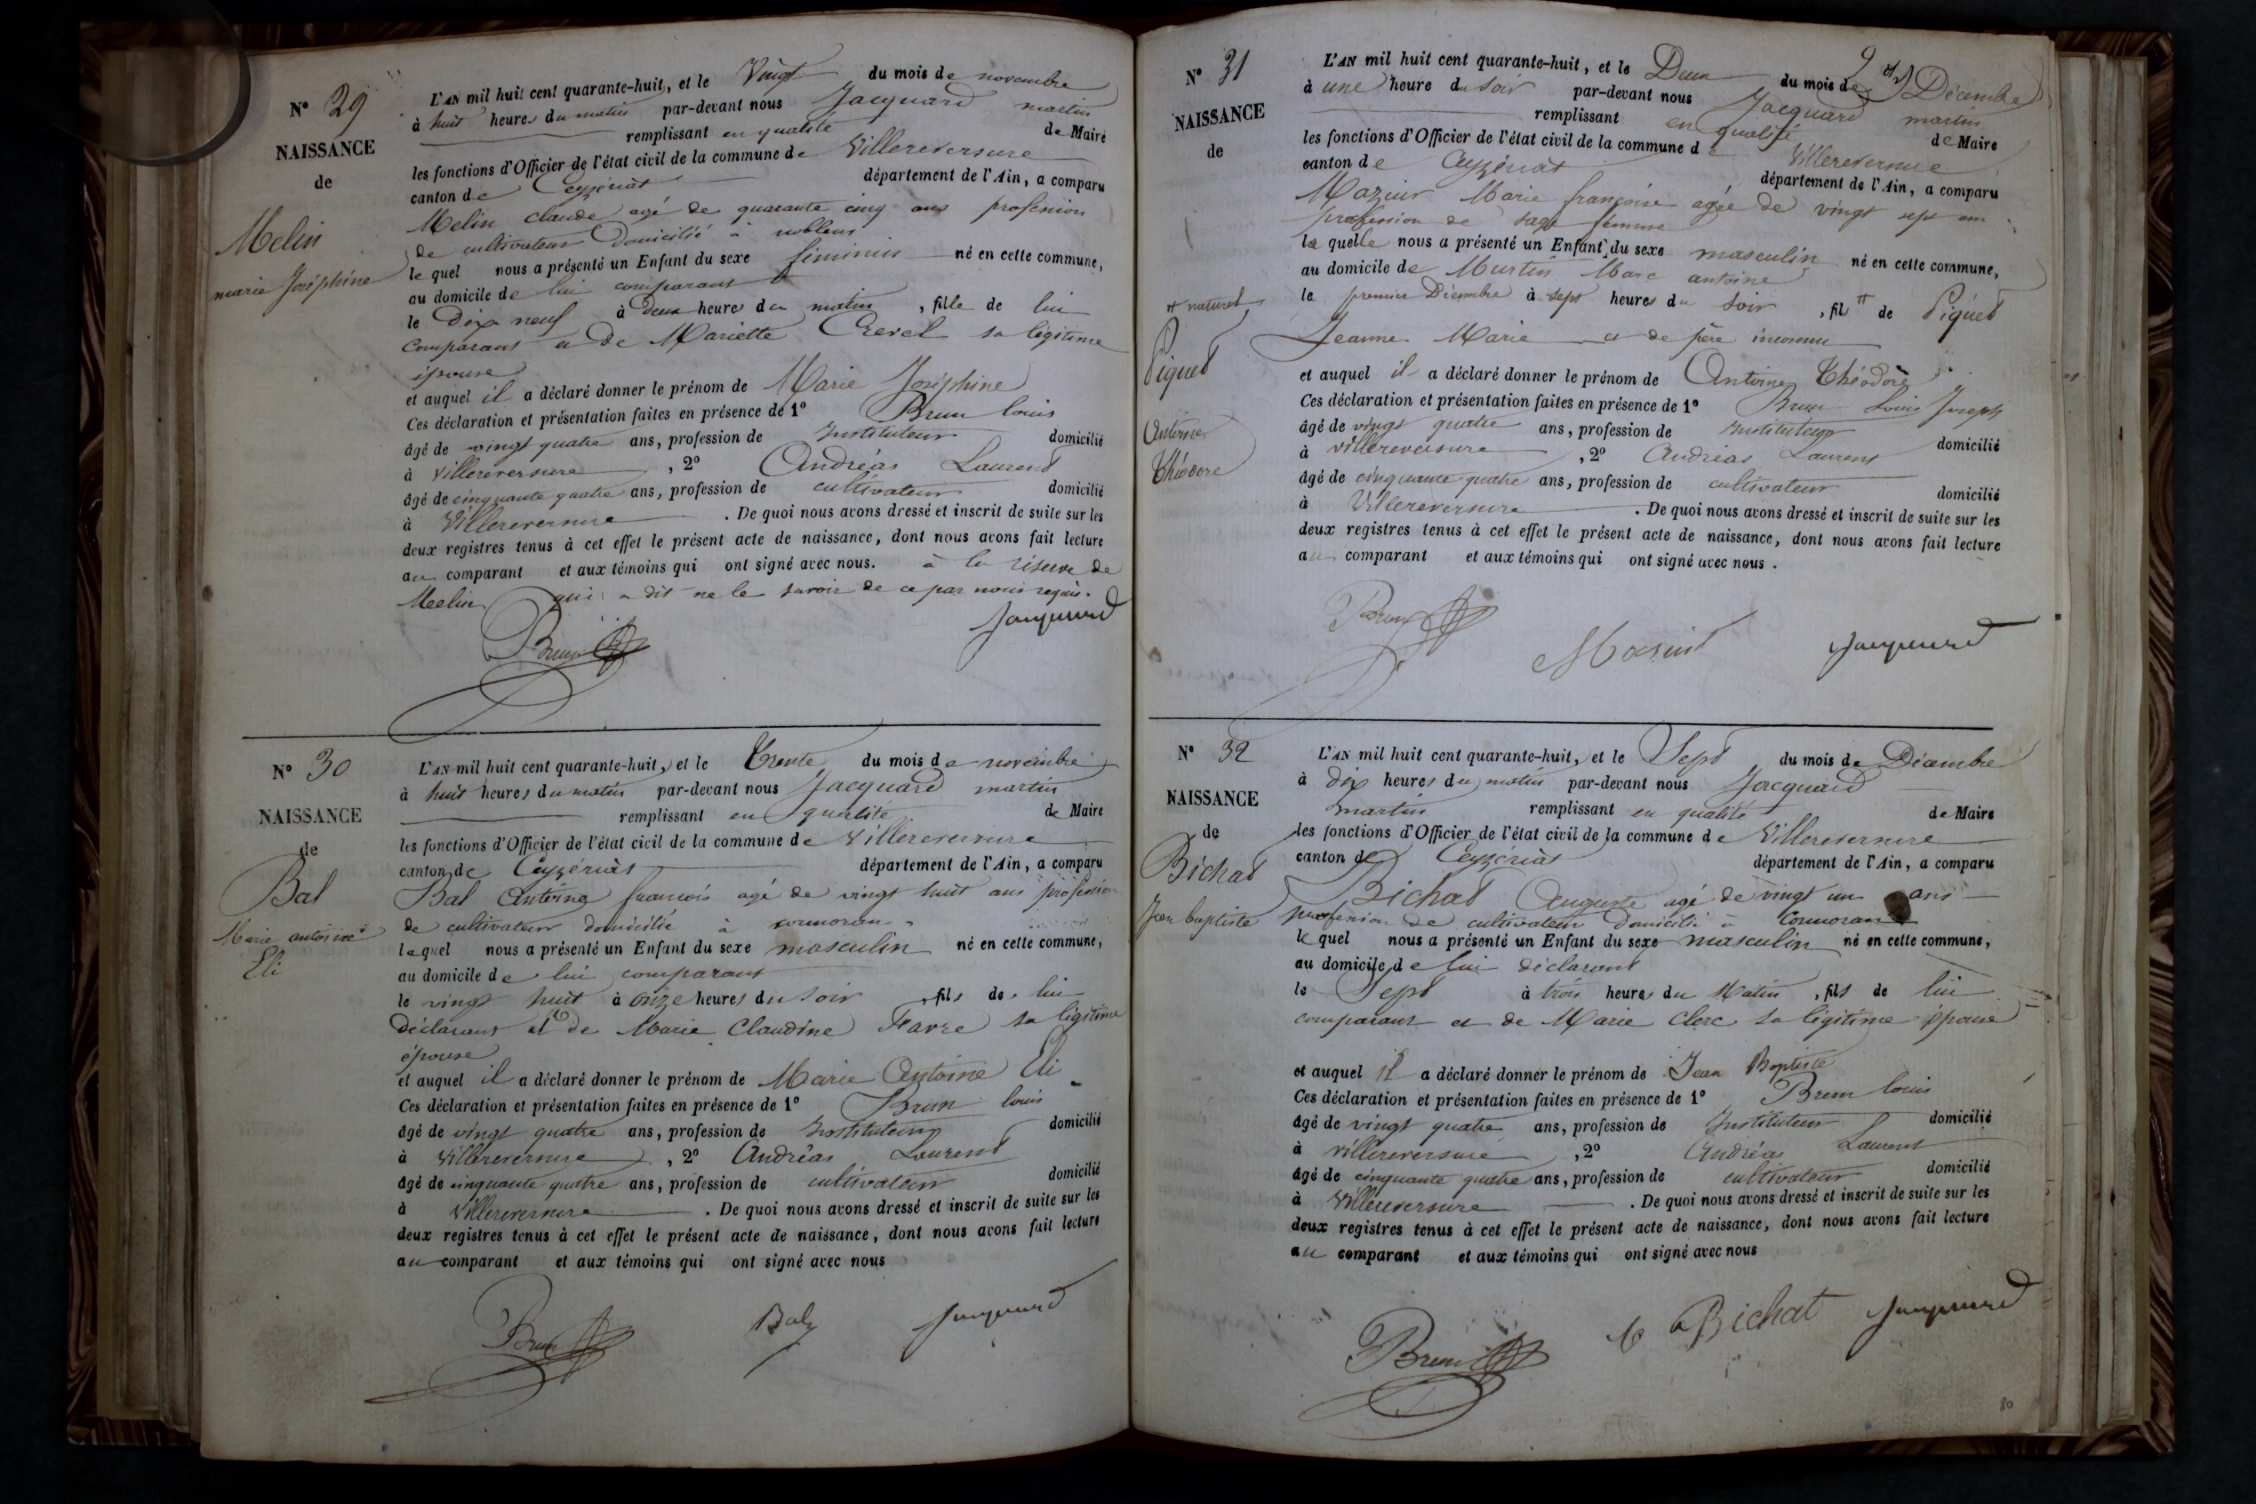 N° 29
NAISSANCE
de
Melin
marie Joséphine
L'AN mil huit cent quarante-huit, et le Vingt du mois de novembre
à huit heures du matin par-devant nous Jacquard martin
remplissant en qualité de Maire
les fonctions d'Officier de l'état civil de la commune de Villereversure
canton de Ceyzériat département de l'Ain, a comparu
Melin Claude agé de quarante cinq ans profession
de cultivateur Domicilié à noblens
le quel nous a présenté un Enfant du sexe féminin né en cette commune,
au domicile de lui comparant
le Dix neuf à deux heures du matin, fille de lui
comparant et de Mariette Crevel sa légitime
épouse
et auquel il a déclaré donner le prénom de Marie Joséphine
Ces déclaration et présentation faites en présence de 1° Brun louis
âgé de vingt quatre ans, profession de Instituteur domicilié
à Villereversure, 2° Andréas Laurent
âgé de cinquante quatre ans, profession de cultivateur domicilié
à Villereversure. De quoi nous avons dressé et inscrit de suite sur les
deux registres tenus à cet effet le présent acte de naissance, dont nous avons fait lecture
au comparant et aux témoins qui ont signé avec nous. à la réserve de
Melin qui a dit ne le savoir de ce par nous requis.
Brun Jacquard
N° 30
NAISSANCE
de
Bal
Marie antoine
Eli
L'AN mil huit cent quarante-huit, et le Trente du mois de novembre
à huit heures du matin par-devant nous Jacquard martin
remplissant en qualité de Maire
les fonctions d'Officier de l'état civil de la commune de Villereversure
canton de Ceyzériat département de l'Ain, a comparu
Bal Antoine françois agé de vingt huit ans profession
de cultivateur domicilié à cormoran
lequel nous a présenté un Enfant du sexe masculin né en cette commune,
au domicile de lui comparant
le vingt huit à onze heures du soir, fils de lui
Déclarant et de Marie Claudine Favre sa légitime
épouse
et auquel il a déclaré donner le prénom de Marie Antoine Eli
Ces déclaration et présentation faites en présence de 1° Brun louis
âgé de vingt quatre ans, profession de Instituteur domicilié
à Villereversure, 2° Andréas Laurent
âgé de cinquante quatre ans, profession de cultivateur domicilié
à Villereversure. De quoi nous avons dressé et inscrit de suite sur les
deux registres tenus à cet effet le présent acte de naissance, dont nous avons fait lecture
au comparant et aux témoins qui ont signé avec nous
Brun Bal Jacquard
N° 31
NAISSANCE
de
naturel
Piquet
Antoine
Théodore
L'AN mil huit cent quarante-huit, et le Deux du mois de Décembre
à une heure du soir par-devant nous Jacquard martin
remplissant en qualité de Maire
les fonctions d'Officier de l'état civil de la commune de Villereversure
canton de Ceyzériat département de l'Ain, a comparu
Mazuir Marie françoise agée de vingt sept ans
profession de sage femme
la quelle nous a présenté un Enfant du sexe masculin né en cette commune,
au domicile de Martin Marc antoine
le premier Décembre à sept heures du soir, fil de Piquet
Jeanne Marie et de père inconnu
et auquel il a déclaré donner le prénom de Antoine Théodore
Ces déclaration et présentation faites en présence de 1° Brun Louis Joseph
âgé de vingt quatre ans, profession de Instituteur domicilié
à Villereversure, 2° Andréas Laurent
âgé de cinquante quatre ans, profession de cultivateur domicilié
à Villereversure. De quoi nous avons dressé et inscrit de suite sur les
deux registres tenus à cet effet le présent acte de naissance, dont nous avons fait lecture
au comparant et aux témoins qui ont signé avec nous.
Brun Jacquard
N° 32
NAISSANCE
de
Bichat
Jean baptiste
L'AN mil huit cent quarante-huit, et le Sept du mois de Décembre
à dix heures du matin par-devant nous Jacquard
martin remplissant en qualité de Maire
les fonctions d'Officier de l'état civil de la commune de Villereversure
canton de Ceyzériat département de l'Ain, a comparu
Bichat Auguste agé de vingt un ans
profession de cultivateur Domicilié à Cormoran
le quel nous a présenté un Enfant du sexe masculin né en cette commune,
au domicile de lui déclarant
le Sept à trois heures du Matin, fils de lui
comparant et de Marie Clerc sa légitime épouse
et auquel il a déclaré donner le prénom de Jean Baptiste
Ces déclaration et présentation faites en présence de 1° Brun louis
âgé de vingt quatre ans, profession de Instituteur domicilié
à villereversure, 2° Andréas Laurent
âgé de cinquante quatre ans, profession de cultivateur domicilié
à Villereversure. De quoi nous avons dressé et inscrit de suite sur les
deux registres tenus à cet effet le présent acte de naissance, dont nous avons fait lecture
au comparant et aux témoins qui ont signé avec nous
Brun Bichat Jacquard
80